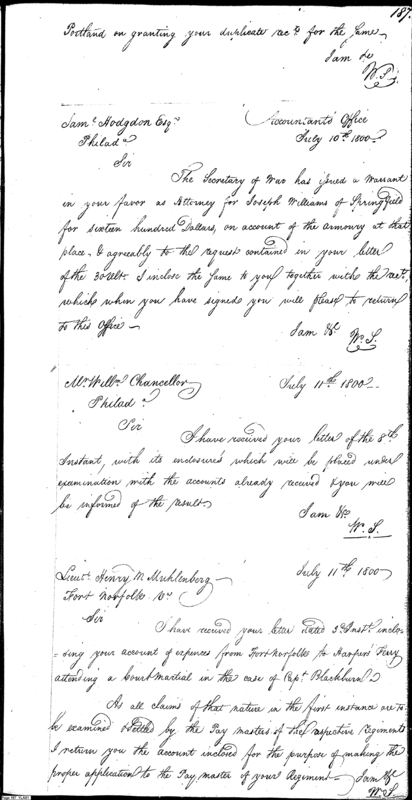 187.
Portland on granting your duplicate rec.ts for the Same
I am &c
W. S.
Sam.l Hodgdon Esq.r
Accountants Office
Philad.a
July 10th. 1800
Sir
The Secretary of War has issued a Warrant
in your favor as Attorney for Joseph Williams of Springfield
for sixteen hundred Dollars, on account of the armoury at that
place, & agreeably to the request contained in your letter
of the 30 Ulto. I inclose the same to you together with the rec.ts,
which when you have signed you will please to return
to this Office
I am &c.
W. S.
Mr. Will.m Chancellor
July 11th. 1800
Philad.a
Sir
I have received your letter of the 8th
Instant, with its enclosure's which will be placed under
examination with the accounts already received & you will
be informed of the result
I am &c.
W. S.
Lieut. Henry M Muhlenberg
July 11th. 1800
Fort Norfolk Va
Sir
I have received your letter dated 3.d Inst. inclo-
-sing your account of expences from Fort Norfolk to Harpers Ferry
attending a Court Martial in the case of Capt. Blackburn
As all claims of that nature in the first instance are to
be examined & settled by the Pay masters of the respective Regiments
I return you the account inclosed for the purpose of making the
proper application to the Pay master of your Regiment
I am &c
W. S.